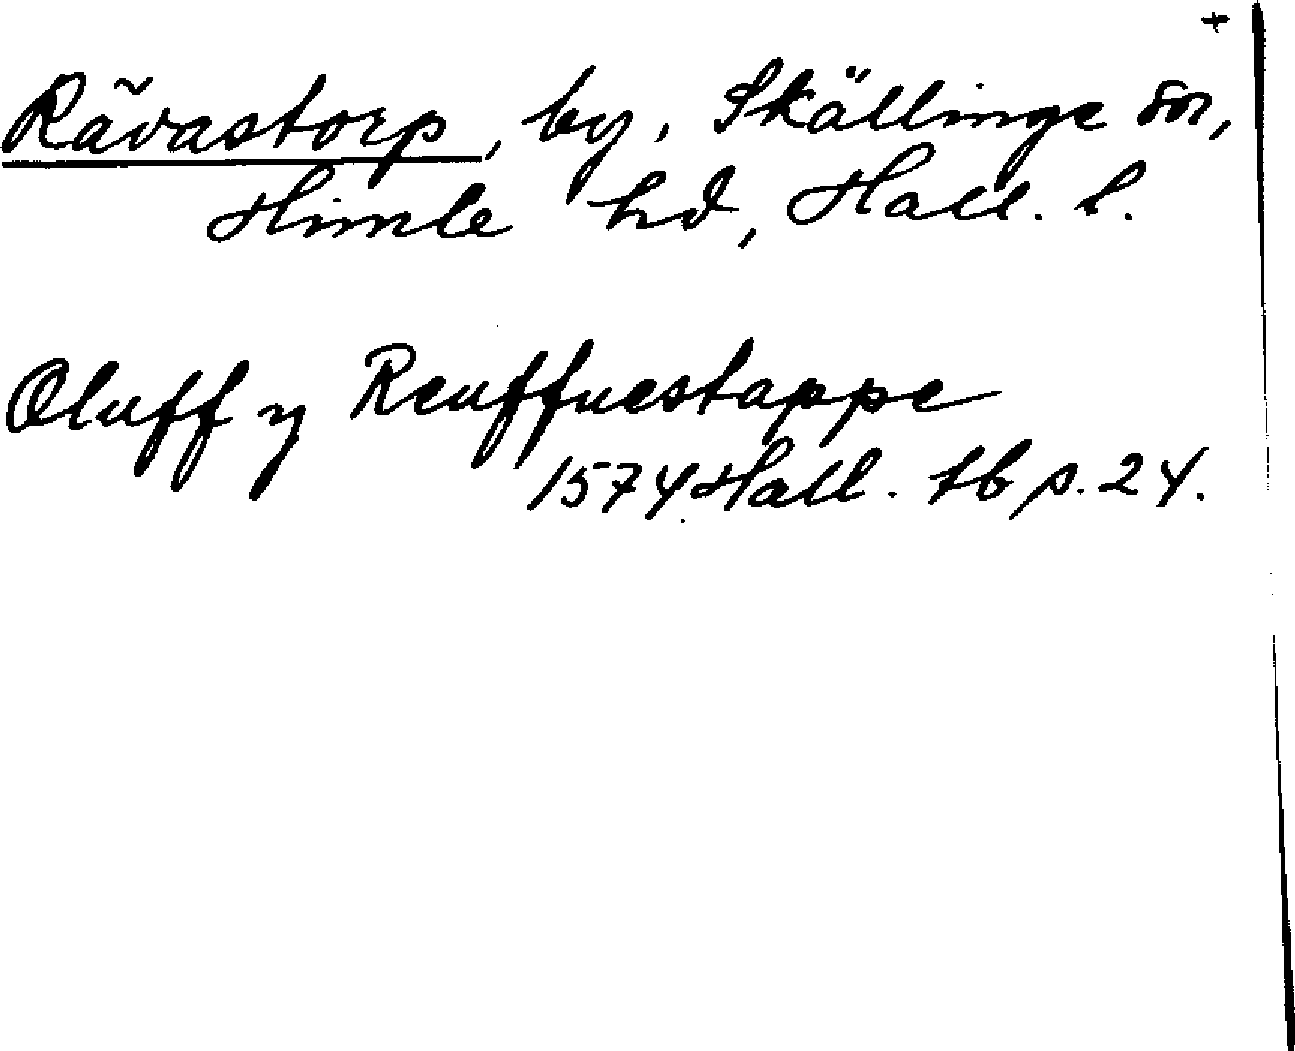 +
Rävastorp, by, Skällinge sn,
Himle hd, Hall. l.
Oluff y Reuffuestappe
1574 Hall. tb s. 24.